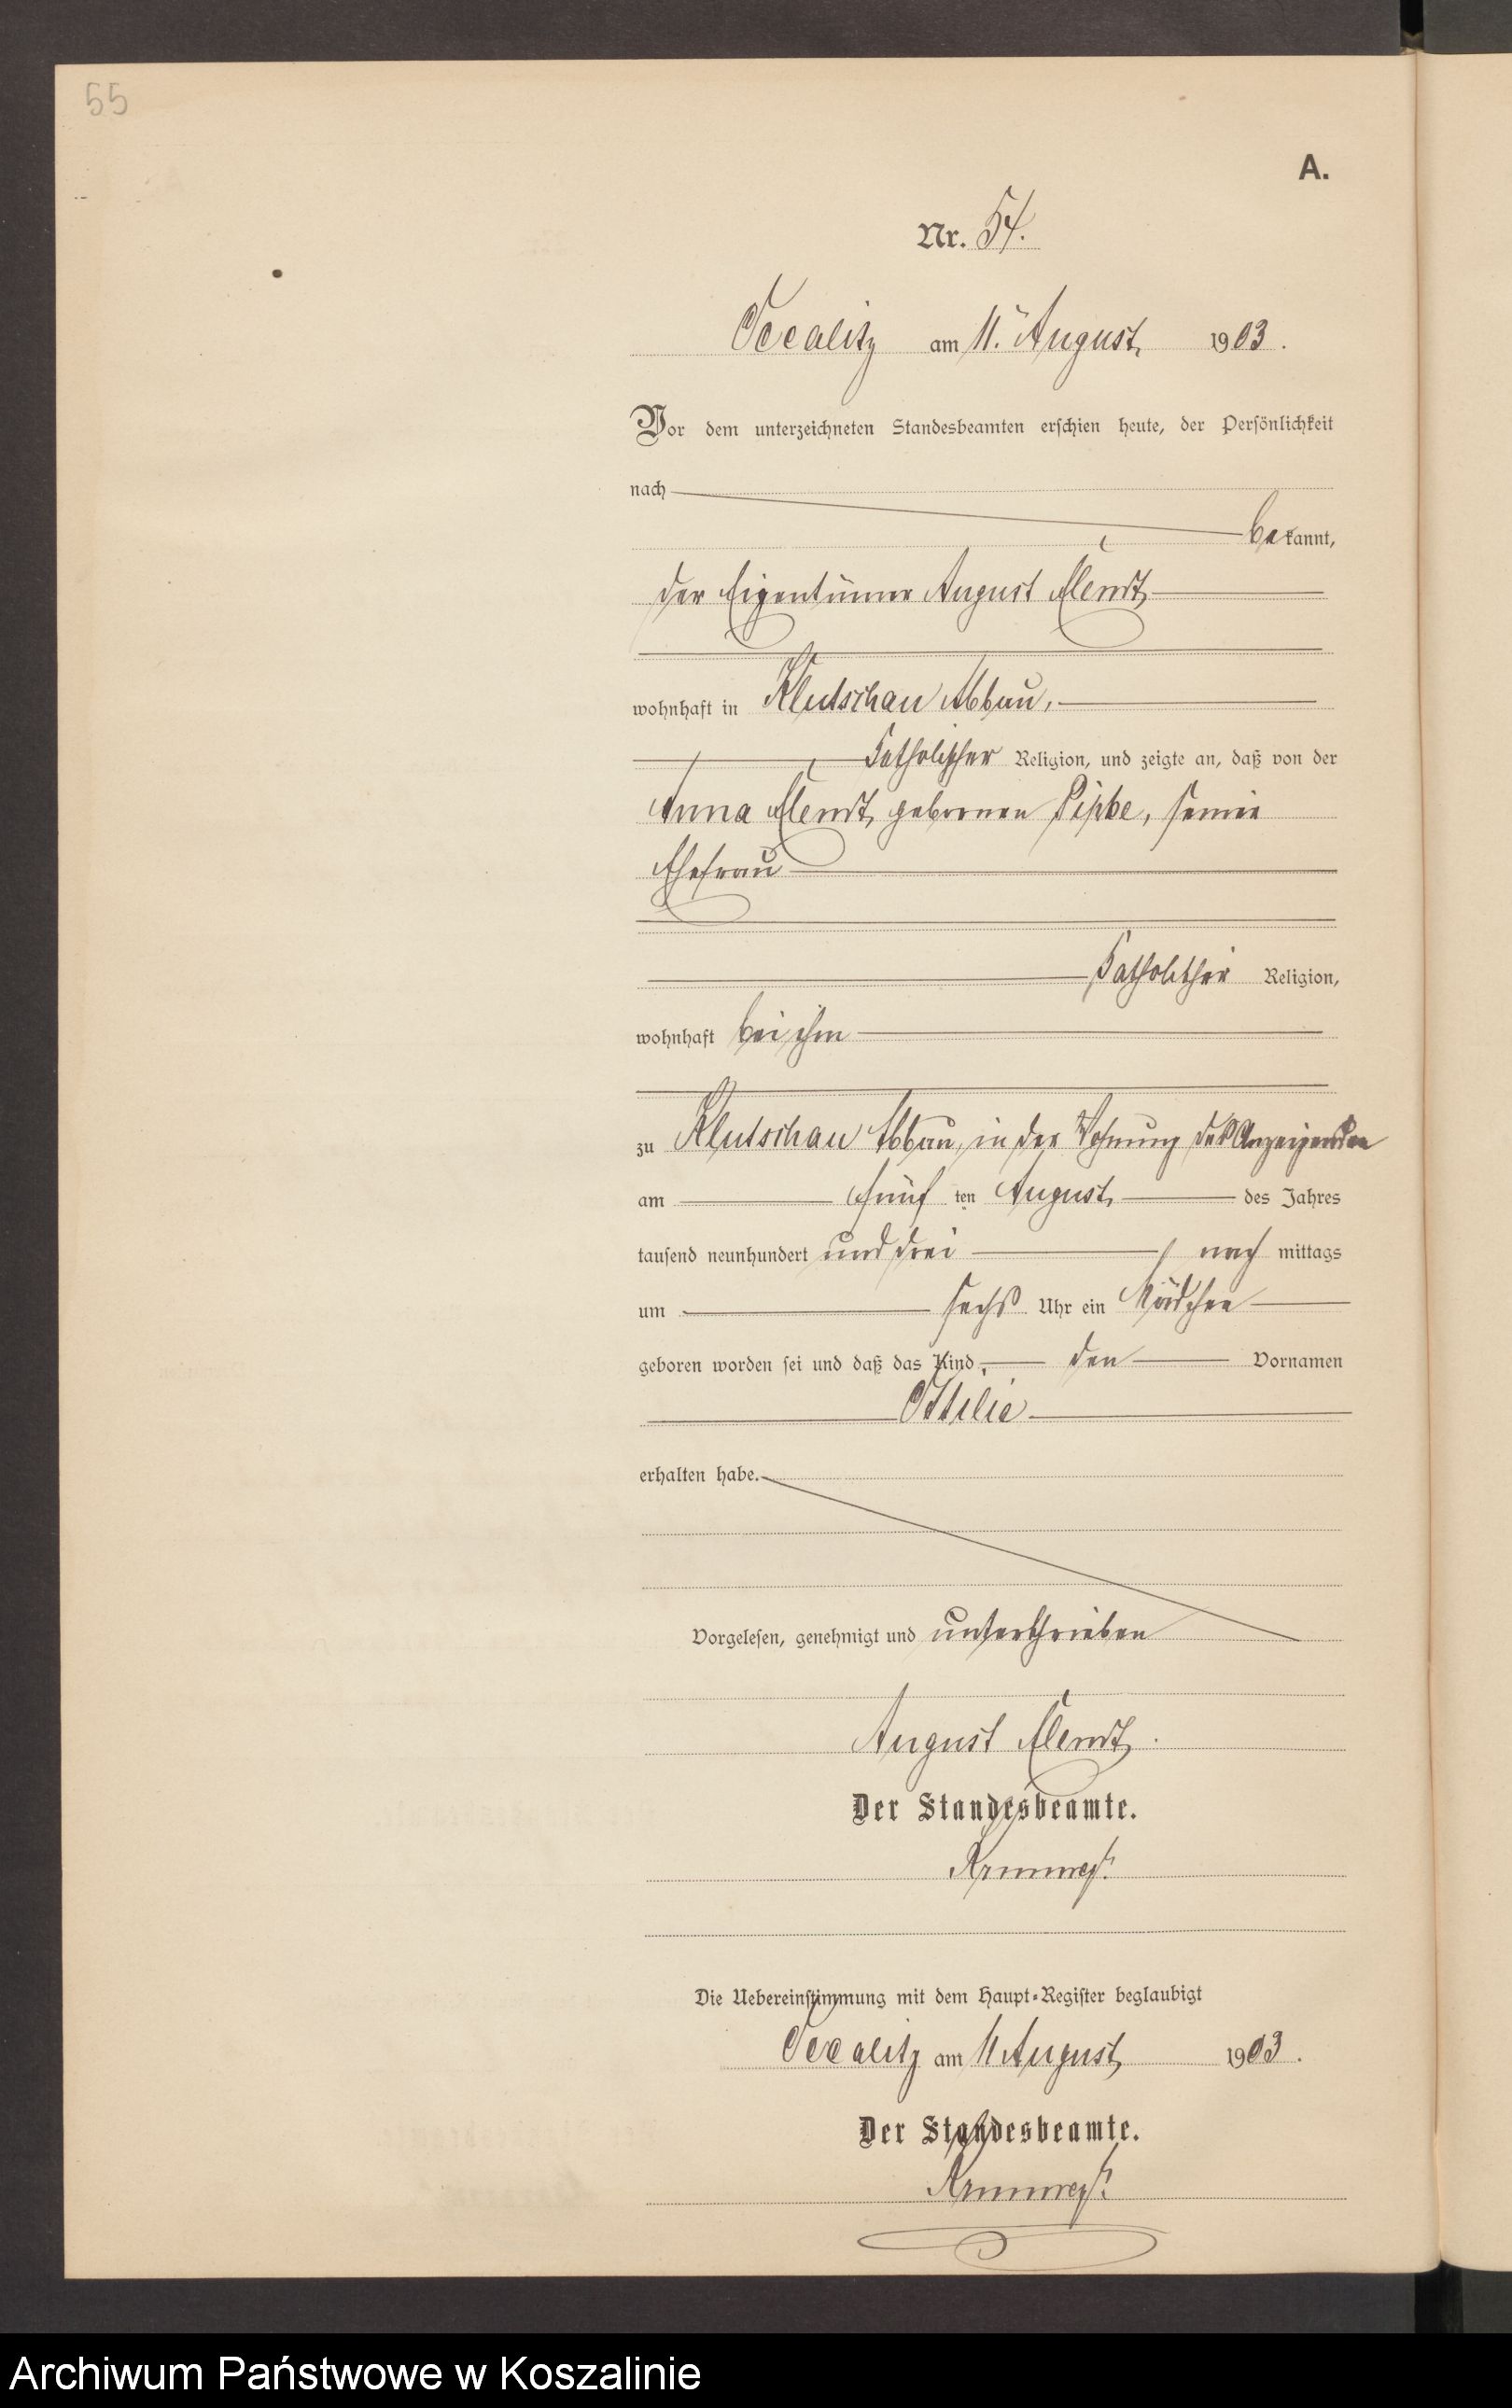 55
A.
Nr. 54.
Occalitz am 11. August 1903.
Vor dem unterzeichneten Standesbeamten erschien heute, der Persönlichkeit
nach
bekannt,
der Eigentümer August Elendt
wohnhaft in Klutschau Abbau,
katholischer Religion, und zeigte an, daß von der
Anna Elendt, geborenen Pipke, seiner
Ehefrau
katholischer Religion,
wohnhaft bei ihm
zu Klutschau Abbau, in der Wohnung des Anzeigenden
am fünf ten August des Jahres
tausend neunhundert und drei nach mittags
um sechs Uhr ein Mädchen
geboren worden sei und daß das Kind den Vornamen
Ottilie
erhalten habe.
Vorgelesen, genehmigt und unterschrieben
August Elendt.
Der Standesbeamte.
Die Uebereinstimmung mit dem Haupt-Register beglaubigt
Occalitz am 11 August 1903.
Der Standesbeamte.
Archiwum Państwowe w Koszalinie